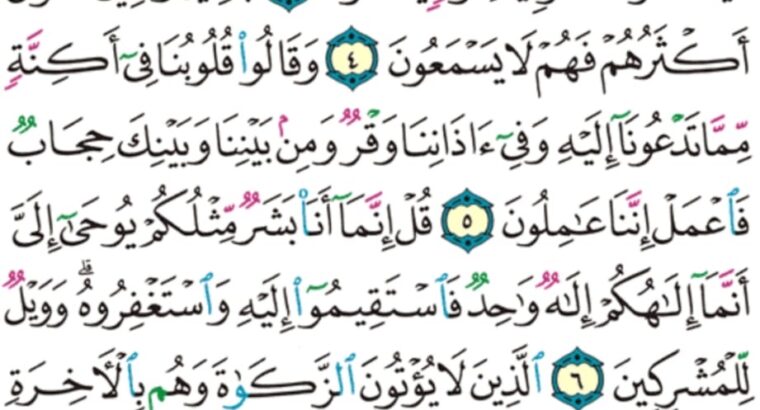 أَكْثَرُهُمْ فَهُمْ لَا يَسْمَعُونَ ٤ وَقَالُوا۟ قُلُوبُنَا فِىٓ أَكِنَّةٍ
مِّمَّا تَدْعُونَآ إِلَيْهِ وَفِىٓ ءَاذَانِنَا وَقْرٌ وَمِنۢ بَيْنِنَا وَبَيْنِكَ حِجَابٌ
فَٱعْمَلْ إِنَّنَا عَـٰمِلُونَ ٥ قُلْ إِنَّمَآ أَنَا۠ بَشَرٌ مِّثْلُكُمْ يُوحَىٰٓ إِلَىَّ
أَنَّمَآ إِلَـٰهُكُمْ إِلَـٰهٌ وَٰحِدٌ فَٱسْتَقِيمُوٓا۟ إِلَيْهِ وَٱسْتَغْفِرُوهُ ۗ وَوَيْلٌ
لِّلْمُشْرِكِينَ ٦ ٱلَّذِينَ لَا يُؤْتُونَ ٱلزَّكَوٰةَ وَهُم بِٱلْـَٔاخِرَةِ